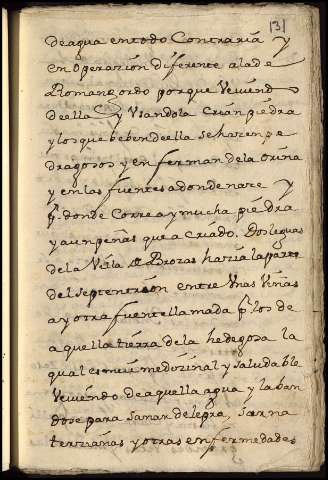 131
de agua en todo Contraria y
en Operazion diferente a la de
Romangordo porque Veviend
de ella y Vsandola Crian piedra
y los que beben de ella se hazen pe
dragosos y enferman de la orina
y en las fuentes adonde nace y
pr. donde Corre ay mucha piedra
y aun peñas que a criado. Dos leguas
de la Villa de Brozas hazia la parte
del septentrion entre Vnas Viñas
ay otra fuente llamada pr. los de
aquella tierra de la hedegosa la
qual es muy medozinal y saludable
Veviendo de aquella agua y laban
dose para sanar de lepra, sarna
terzianas y otras enfermedades